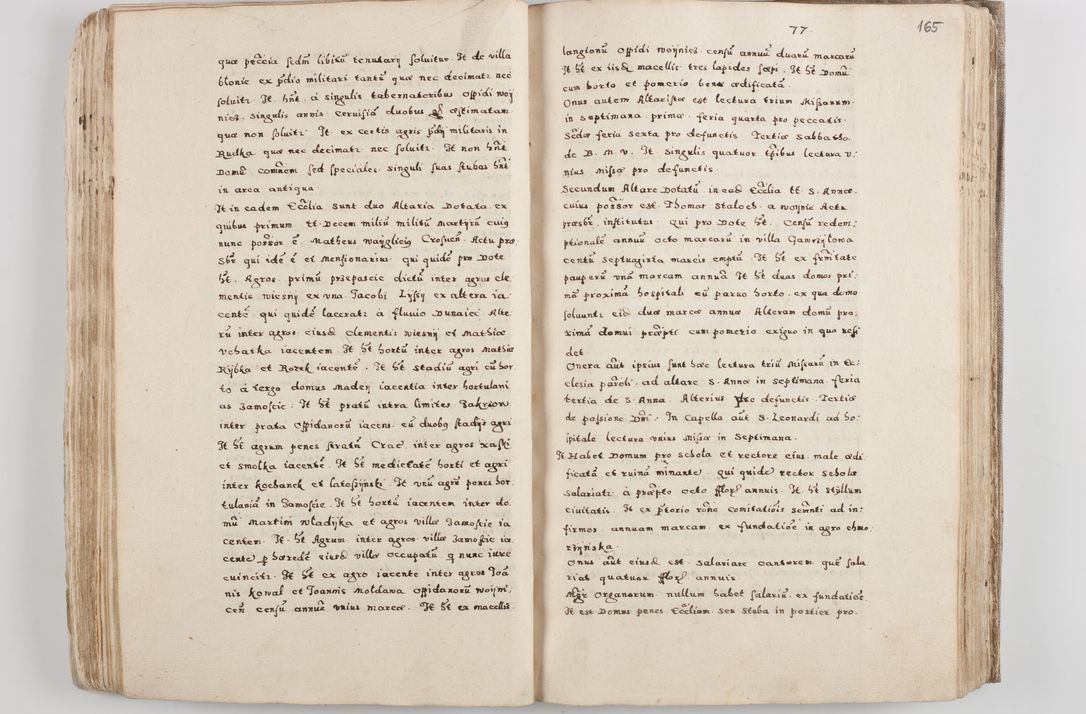 quæ peccia sedm̃ libitũ tenutarij soluitur. It de villa
blonie ex p̃dio militari tantũ quæ nec decimatr nec
soluitr. It hñt à singulis tabernatoribus oppidi woÿ
nicz. singulis annis ceruisiã duobus æstimatam
quæ non soluitr. It. ex certis agris militaris in
Rudka quæ nec decimatr nec soluitr. It non hñt
Domũ com̃nem sed speciales. singuli suas stubas hñt
in area antiqua
It in eadem Ecc̃lia sunt duo Altaria Dotata. ex
quibus primum. tt. Decem miliũ militũ Martÿrũ cuiꝯ
nunc possor ẽ. Matheus Croscẽn. Actu præ
sbr̃ qui idẽ ẽ et Mensionarius. qui quidẽ pro Dote
h̃t. Agros. primũ przepascie dictũ inter agros cle
mentis wiesnÿ ex vna. Jacobi Lÿsÿ ex altera ia
centẽ. qui quidẽ laceratr à fluvio Dunaiec. Alte
rũ inter agros eiusd Clementis wiesnÿ et Mathiæ
vchatka iacentem. It h̃t hortũ inter agros Mathiæ
Rÿbka et Rozek iacentẽ. It h̃t stadiũ agri cũ hor
to à tergo domus Madeÿ iacentia inter hortulani
as Zamoscie: It h̃t pratũ intra limites Zakrzow
inter prata oppidanorũ iacens. cũ duobꝯ stadÿs agri
It h̃t agrum penes stratũ Crac̃. inter agros
et smolka iacentẽ. It h̃t medietatẽ horti et agri
inter kochanek et latoszÿnski. It vnũ agrũ penes hor
tulaniã in Zamoscie. It h̃t hortũ iacentem inter do
mũ Martini wladÿka et agros villæ Zamoscie ia
centem. It. h̃t Agrum inter agros villæ Zamoscie ia
cente p hæredẽ eiusd villæ occupatũ q nunc iure
euincitr. It h̃t ex agro iacente inter agros Joã
nis koval et Joannis Moldana oppidanorũ woÿni
ceñ censũ annuũ vnius marcæ. It h̃t ex macellis
77.
165
langionũ oppidi woÿnicz. censũ annuũ duarũ marcarũ
It h̃t ex iisd macellis tres lapides sæpi. It h̃t Domũ
cum horto et pomerio bene ædificatã.
Onus autem Altaristæ est lectura trium Missarum
in septimana. prima. feria quarta pro peccatis.
Scđa feria sexta pro defunctis. Tertia Sabbatho
de B. M. V. It singulis quatuor tp̃ibus lectura v:
nius Missæ pro defunctis.
Secundum Altare Dotatũ in ead Ecc̃lia tt. S. Annæ.
cuius possor est. Thomas Staloch. à woÿnic Actu
præsbr̃. institutus. qui pro Dote h̃t. Censũ redem:
ptionalẽ annuũ octo marcarũ in villa Gawrzÿlowa
centũ septuaginta marcis emptũ. It h̃t ex
pauperũ vnã marcam annuã. It h̃t duas domos pri:
mã proximã hospitali cũ paruo horto. ex qua domo
soluuntr eid duæ marcæ annuæ. Alteram domũ pro:
ximã domui præp̃ti cum pomerio exiguo in quo resi
det
Onera aũt ipsius sunt hæc lectura triũ Missarũ in Ec:
clesia paroli. ad altare S. Annæ in septimana. feria
tertia de S. Anna. Alterius pro defunctis. Tertiæ
de passione Dñi. In Capella aũt S. Leonardi ad ho:
spitale lectura vnius missæ in septimana.
It Habet Domum pro schola et rectore eius. male ædi:
ficatã et ruinã minante. qui quidẽ rector scholæ
salariatr à præp̃to octo annuis. It h̃t stÿllum
ciuitatis. It ex p̃torio rõne comitationis in:
firmos. annuam marcam. ex fundatiõe in agro chmo:
rzÿnska.
Onus aũt eiusd. est salariare cantorem quẽ sala
riat quatuor annuis.
Mgr̃ organorum. nullum habet salariũ. ex fundatiõe
It est Domus penes Ecc̃liam. seu stuba in porticu pro: